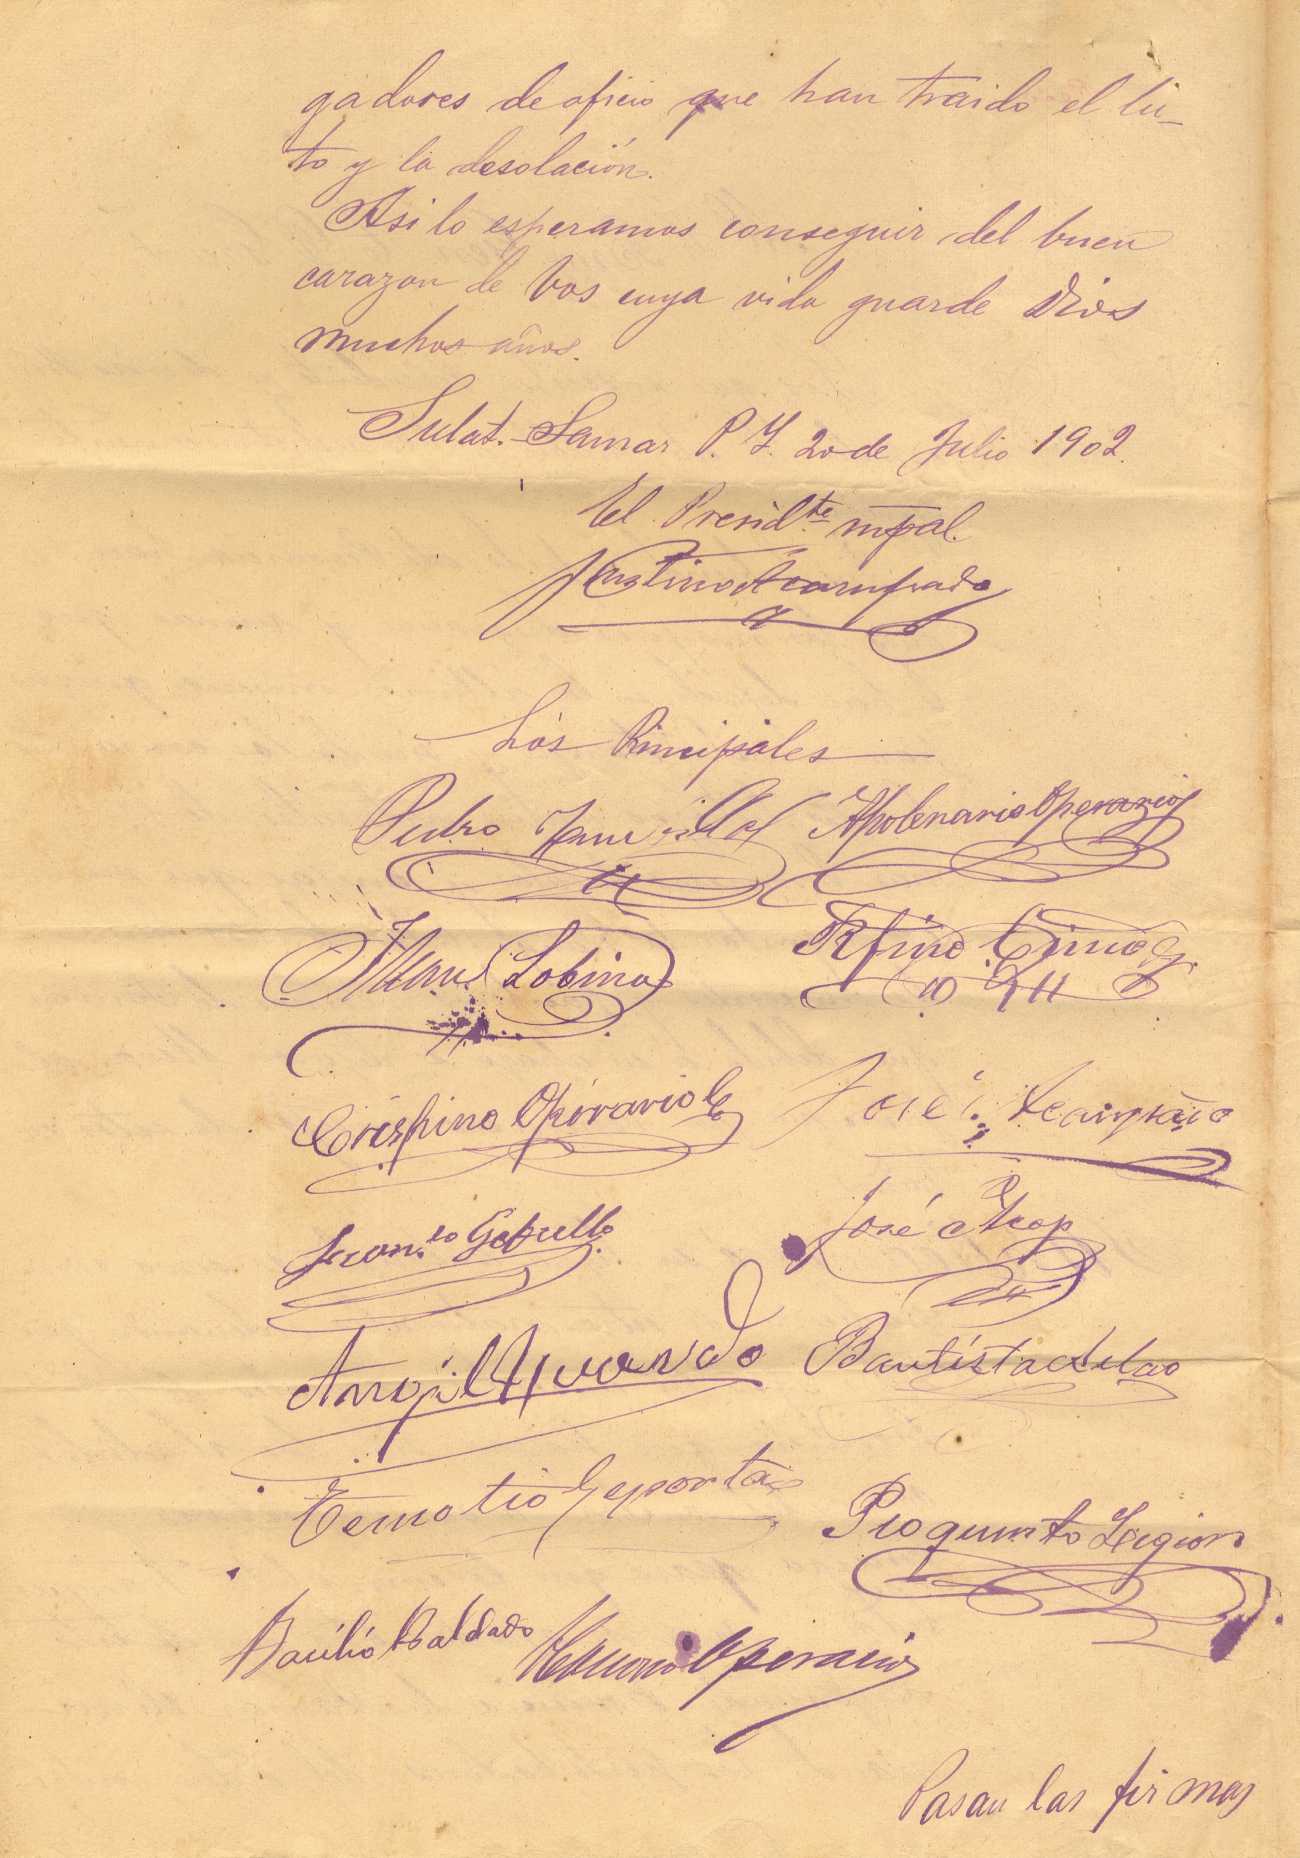 gadores de oficio que han traido el lu-
to y la desolación.
Asi lo esperamos conseguir del buen
carazon de Vos cuya vida guarde Dios
muchos años.
Sulat.-Samar P. I. 20 de Julio 1902.
El Presidte mpal.
Los Principales
Pedro
Apolenario Operario
Juan Lobina
Rfino
Crespino Operario
José
José
Angel
Bautista
Temotio
Pioquinto Legion
Bacilio Baldado
Operario
Pasan las firmas